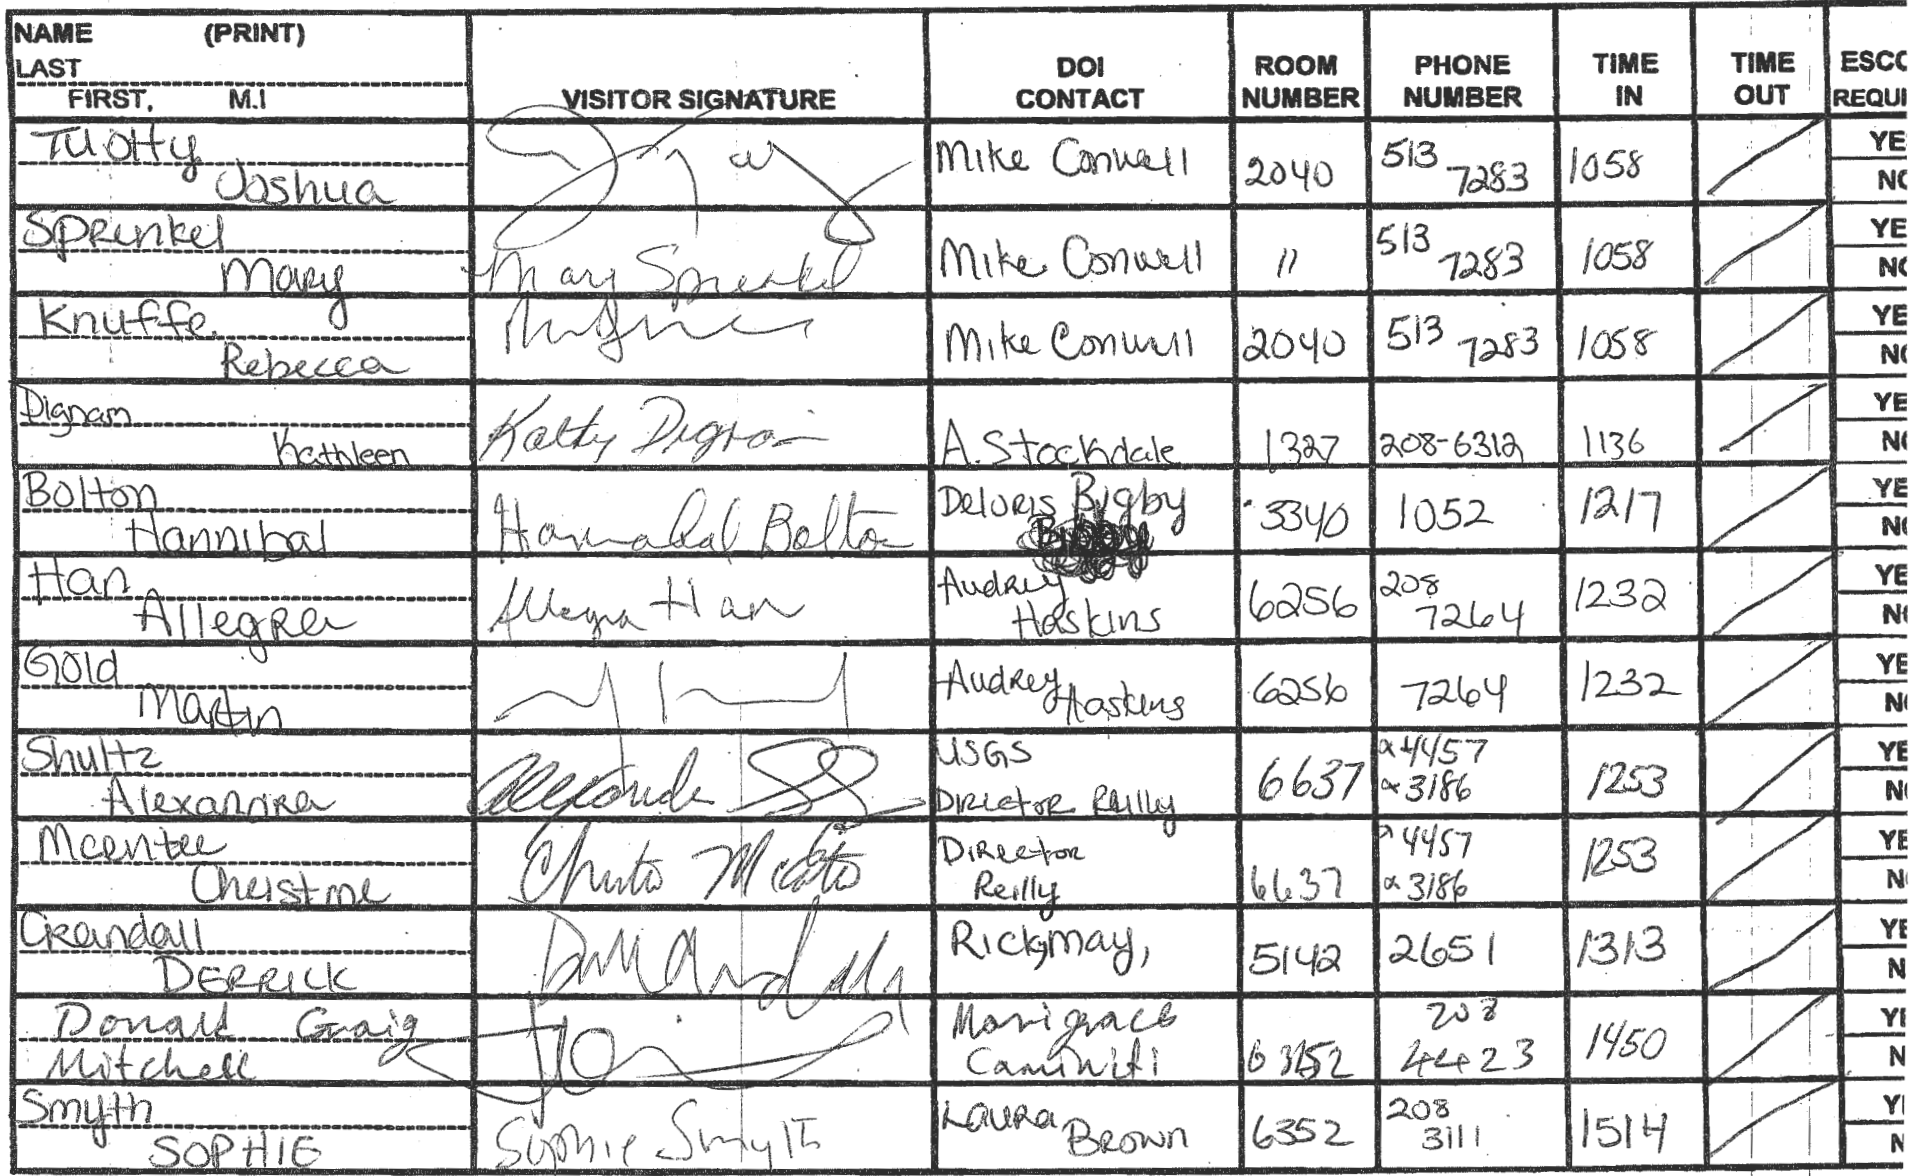 NAME (PRINT)
LAST
FIRST, M.I
VISITOR SIGNATURE
DOI CONTACT
ROOM NUMBER
PHONE NUMBER
TIME IN
TIME OUT
ESCO
REQUI
Tuohy Joshua Mike Conwell 2040 513 7283 1058 YE NO
Sprenkel Mary Mary Sprenkel Mike Conwell 11 513 7283 1058 YE NO
Knuffe Rebecca Mike Conwell 2040 513 7283 1058 YE NO
Dignam Kathleen Kathy Dignam A. Stockdale 1327 208-6312 1136 YE NO
Bolton Hannibal Hannibal Bolton Deloris Bigby 3340 1052 1217 YE NO
Han Allegra Allegra Han Audrey Haskins 6256 208 7264 1232 YE NO
Gold Martin Audrey Haskins 6256 7264 1232 YE NO
Shultz Alexandra Alexandra USGS Director Reilly 6637 4457 3186 1253 YE NO
Mcentee Christine Director Reilly 6637 4457 3186 1253 YE NO
Crandall DERRICK Rick May, 5142 2651 1313 YE N
Donald Craig Mitchell Marigrace Caminiti 208 4423 1450 YE N
Smyth SOPHIE Sophie Smyth Laura Brown 6352 208 3111 1514 YE N